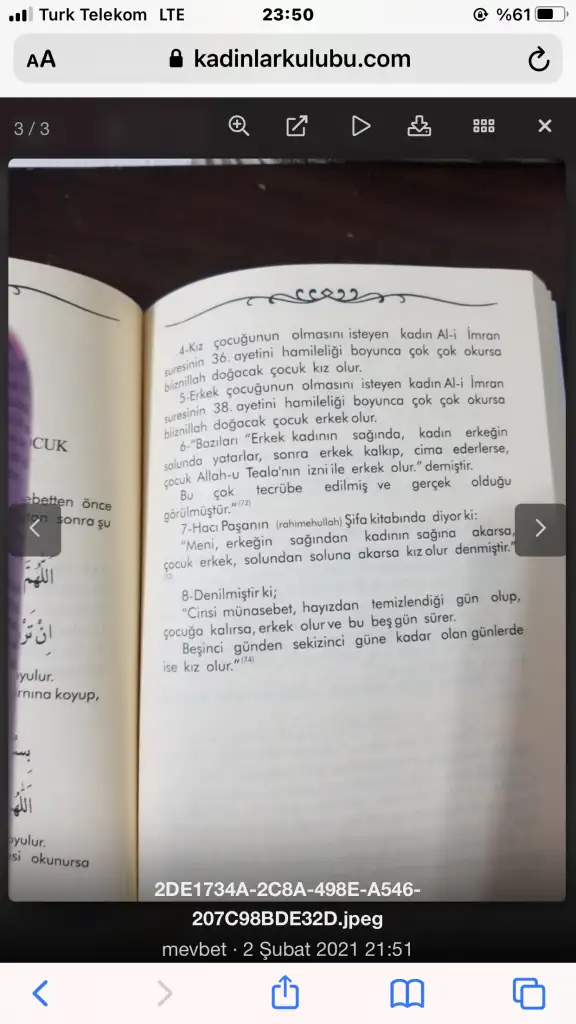 Turk Telekom LTE
23:50
%61
AA
kadinlarkulubu.com
3 / 3
4-Kız çocuğunun olmasını isteyen kadın Al-i İmran
suresinin 36. ayetini hamileliği boyunca çok çok okursa
biiznillah doğacak çocuk kız olur.
5-Erkek çocuğunun olmasını isteyen kadın Al-i İmran
suresinin 38. ayetini hamileliği boyunca çok çok okursa
biiznillah doğacak çocuk erkek olur.
6-"Bazıları "Erkek kadının sağında, kadın erkeğin
solunda yatarlar, sonra erkek kalkıp, cima ederlerse,
çocuk Allah-u Teala'nın izni ile erkek olur." demiştir.
Bu çok tecrübe edilmiş ve gerçek olduğu
görülmüştür."(72)
7-Hacı Paşanın (rahimehullah) Şifa kitabında diyor ki:
"Meni, erkeğin sağından kadının sağına akarsa,
çocuk erkek, solundan soluna akarsa kız olur denmiştir."
8-Denilmiştir ki;
"Cinsi münasebet, hayızdan temizlendiği gün olup,
çocuğa kalırsa, erkek olur ve bu beş gün sürer.
Beşinci günden sekizinci güne kadar olan günlerde
ise kız olur."(74)
OCUK
ebetten önce
sonra şu
اَللّٰهُمَّ
اِنْ
yulur.
rnına koyup,
اَللّٰهُ
oyulur.
si okunursa
2DE1734A-2C8A-498E-A546-
207C98BDE32D.jpeg
mevbet · 2 Şubat 2021 21:51